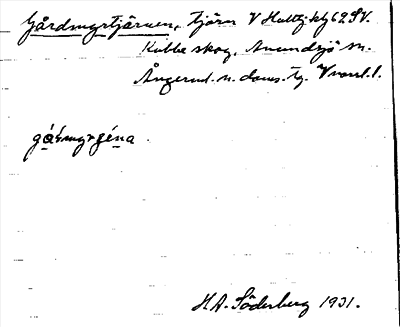 Gårdmyrtjärnen, tjärn V Hultsjö bl. 62 SV.
Kubbe skog, Anundsjö sn.
Ångerml. n. doms. tg. V norrl. l.
gå̱rmyrgéna
H.A. Söderberg 1931.